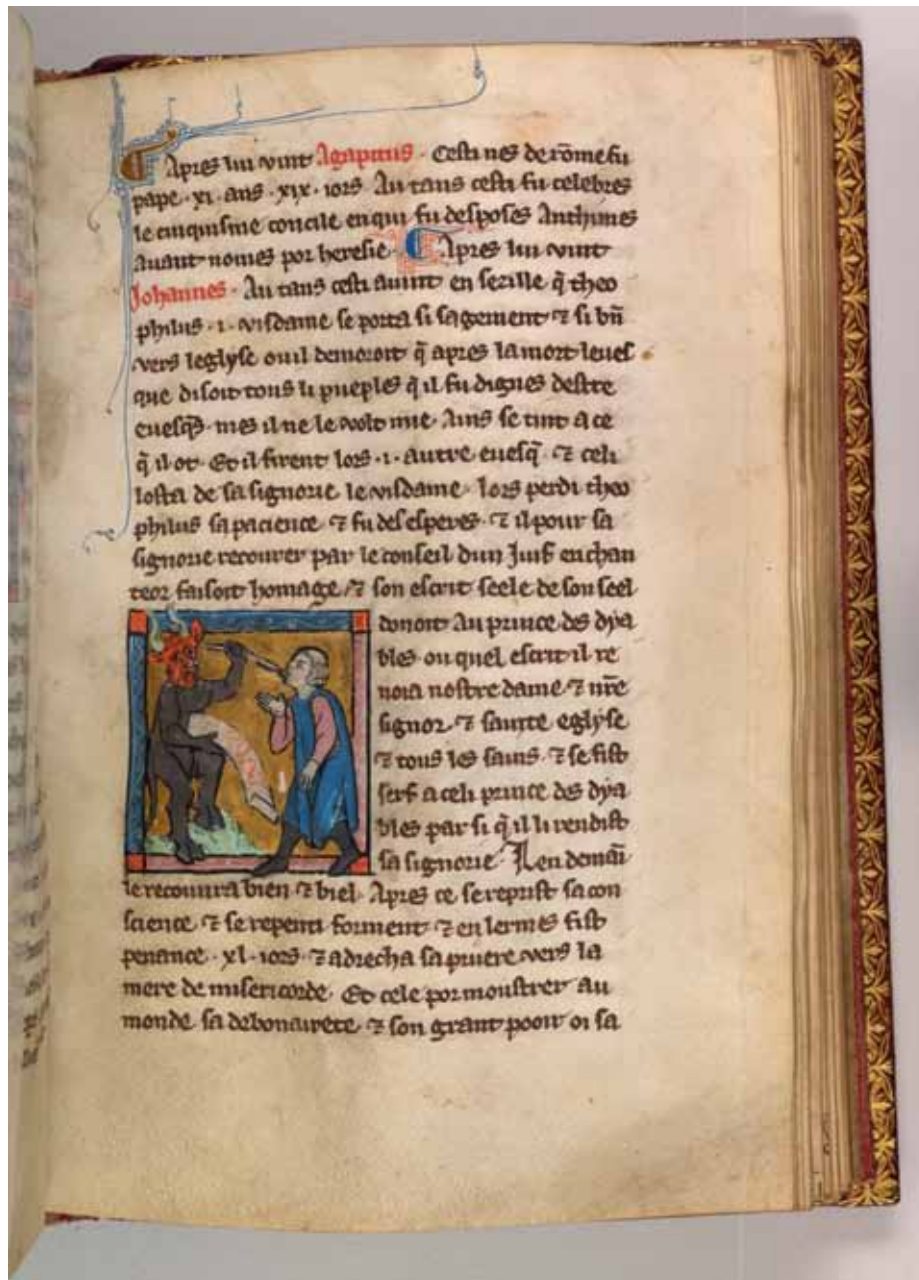 ¶ Apres lui vint Agapitus · Cesti nes de rōme fu
pape · xi · ans · xix · iors · Au tans cesti fu celebres
le cinquisme concile en qui fu desposes Anthimes
auant nomes por heresie · ¶ Apres lui vint
Johannes · Au tans cesti auint en sezille q̄ theo
philus · i · visdame se porta si sagement ⁊ si bn̄
vers leglyse ou il demoroit q̄ apres la mort leues
que disoit tous li pueples q̄ il fu dignes destre
euesq̄s · mes il ne le volt mie · Ains se tint a ce
q̄ il ot · Et il firent lors · i · autre euesq̄ · ⁊ celi
losta de sa signorie le visdame · lors perdi theo
philus sa pacience · ⁊ fu desesperes · ⁊ il pour sa
signorie recourer par le conseil dun Juif enchan
teor faisoit homage · ⁊ son escrit seele de son seel
donoit au prince des dya
bles · ou quel escrit il re
noia nostre dame · ⁊ nr̄e
signor · ⁊ sainte eglyse
⁊ tous les sains · ⁊ se fist
serf a celi prince des dya
bles par si q̄ il li rendist
sa signorie · Lendemai͞
le recouura bien ⁊ biel · Apres ce se reprist sa con
science · ⁊ se repenti forment · ⁊ en lermes fist
penance · xl · iors · ⁊ adrecha sa priere vers la
mere de misericorde · Et cele por moustrer au
monde sa debonairete · ⁊ son grant pooir oi sa